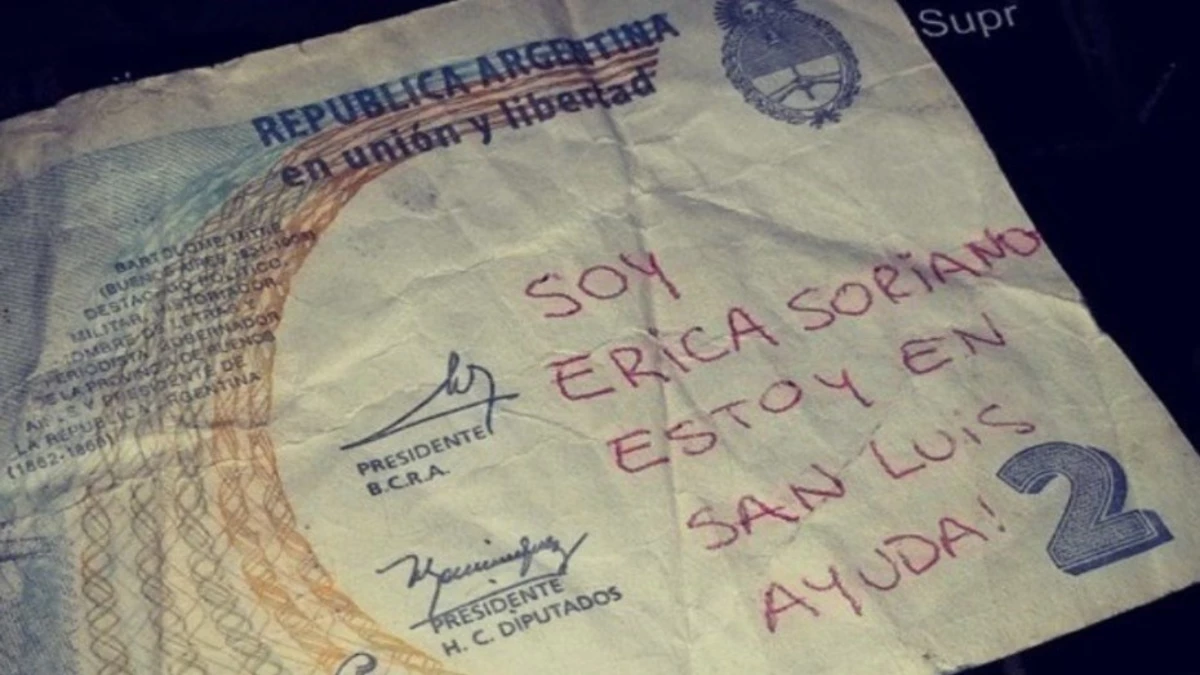 Supr
REPUBLICA ARGENTINA
en unión y libertad
BARTOLOME MITRE
(BUENOS AIRES 1821-1906)
DESTACADO POLITICO,
MILITAR, HISTORIADOR,
HOMBRE DE LETRAS Y
PERIODISTA, GOBERNADOR
DE LA PROVINCIA DE BUENOS
AIRES Y PRESIDENTE DE
LA REPUBLICA ARGENTINA
(1862-1868)
SOY
ERICA SORIANO
ESTOY EN
SAN LUIS
AYUDA!
PRESIDENTE
B.C.R.A.
2
PRESIDENTE
H. C. DIPUTADOS